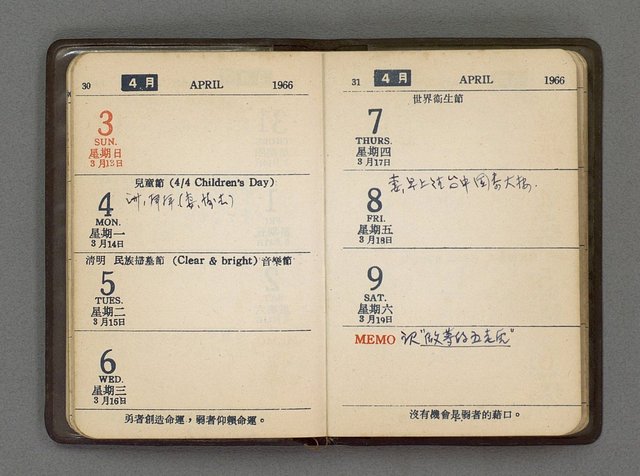 30 4月 APRIL 1966
3
SUN.
星期日
3月13日
兒童節 (4/4 Children's Day)
4
MON.
星期一
3月14日
清明 民族掃墓節 (Clear & bright) 音樂節
5
TUES.
星期二
3月15日
6
WED.
星期三
3月16日
勇者創造命運，弱者仰賴命運。
31 4月 APRIL 1966
世界衛生節
7
THURS.
星期四
3月17日
早上往台中
8
FRI.
星期五
3月18日
9
SAT.
星期六
3月19日
MEMO
沒有機會是弱者的藉口。